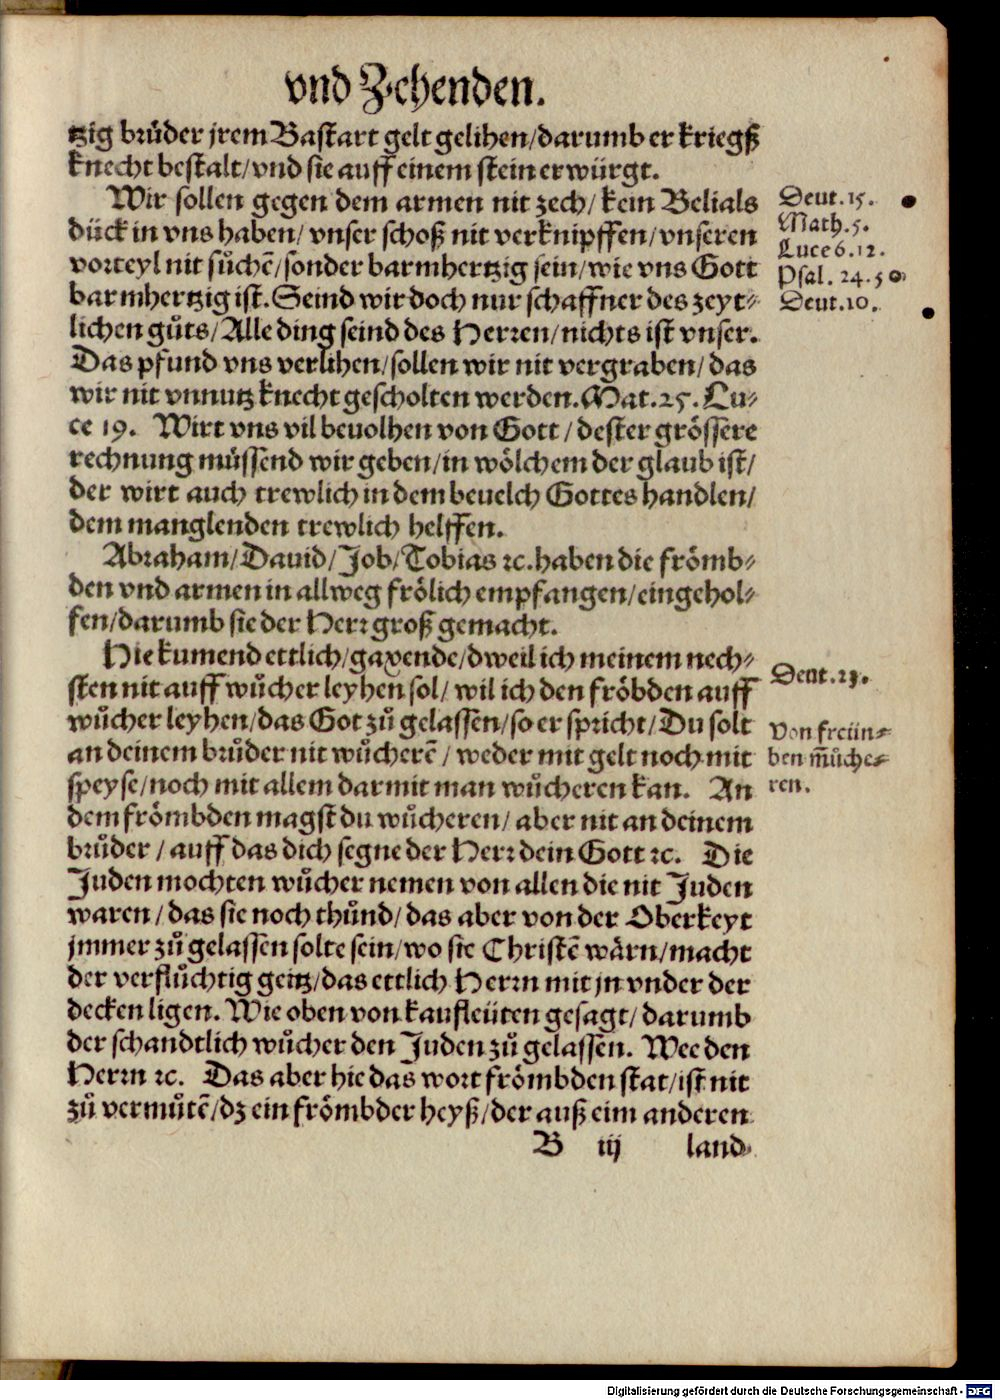 vnd Zehenden.
tzig brůder jrem Bastart gelt gelihen/darumb er kriegß
knecht bestalt/vnd sie auff einem stein erwürgt.
Wir sollen gegen dem armen nit zech/kein Belials
dück in vns haben/vnser schoß nit verknipffen/vnseren
vorteyl nit sůchē/sonder barmhertzig sein/wie vns Gott
barmhertzig ist. Seind wir doch nur schaffner des zeyt-
lichen gůts/Alle ding seind des Herren/nichts ist vnser.
Das pfund vns verlihen/sollen wir nit vergraben/das
wir nit vnnutz knecht gescholten werden. Mat. 25. Lu-
ce 19. Wirt vns vil beuolhen von Gott/dester grössere
rechnung müssend wir geben/in wölchem der glaub ist/
der wirt auch trewlich in dem beuelch Gottes handlen/
dem manglenden trewlich helffen.
Abraham/Dauid/Job/Tobias ꝛc. haben die frömb-
den vnd armen in allweg frölich empfangen/eingehol-
fen/darumb sie der Herr groß gemacht.
Hie kumend ettlich/gaxende/dweil ich meinem nech-
sten nit auff wůcher leyhen sol/wil ich den fröbden auff
wůcher leyhen/das Got zů gelassen/so er spricht/Du solt
an deinem brůder nit wůcherē/weder mit gelt noch mit
speyse/noch mit allem darmit man wůcheren kan. An
dem frömbden magst du wůcheren/aber nit an deinem
brůder/auff das dich segne der Herr dein Gott ꝛc. Die
Juden mochten wůcher nemen von allen die nit Juden
waren/das sie noch thůnd/das aber von der Oberkeyt
jmmer zů gelassen solte sein/wo sie Christē wärn/macht
der verflůchtig geitz/das ettlich Herrn mit jn vnder der
decken ligen. Wie oben von kaufleüten gesagt/darumb
der schandtlich wůcher den Juden zů gelassen. Wee den
Herrn ꝛc. Das aber hie das wort frömbden stat/ist nit
zů vermůtē/dz ein frömbder heyß/der auß eim anderen
B iij land-
Deut. 15.
Math. 5.
Luce 6. 12.
Psal. 24. 50
Deut. 10.
Deut. 23.
Von freün-
ben
ren.
Digitalisierung gefördert durch die Deutsche Forschungsgemeinschaft - DFG